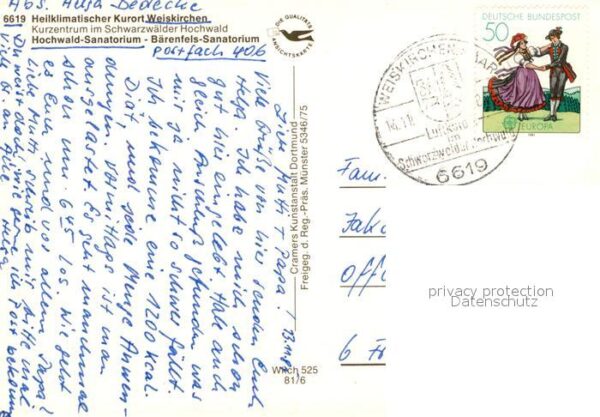 Abs. Helga Bedecke
6619 Heilklimatischer Kurort Weiskirchen
Kurzentrum im Schwarzwälder Hochwald
Hochwald-Sanatorium - Bärenfels-Sanatorium
Postfach 406
DIE QUALITÄTS
ANSICHTSKARTE
DEUTSCHE BUNDESPOST
50
EUROPA
WEISKIRCHEN
Luftkurort
im
Schwarzwälder Hochwald
6619
Liebe Mutti + Papa!
Viele Grüße von hier senden Euch
Helga. Ich habe mich schon
gut hier eingelebt. Habe auch
gleich Anschluß gefunden was
mir ja nicht so schwer fällt.
Ich bekomme eine 1200 kcal.
Diät und jede Menge Anwen-
dungen. Vormittags ist man
ausgelastet. Es geht manchmal
schon um 6.45 los. Wie geht
es Euch und vor allem Papa?
Liebe Mutti schreib mir bitte mal
Du weißt doch, wie gerne ich Post bekomme
Viele an Alle
Helga
Cramers Kunstanstalt Dortmund
Freigeg. d. Reg.-Präs. Münster 5346/75
Wkch 525
81/6
Fam.
Jako
Offe
6 Fr
privacy protection
Datenschutz